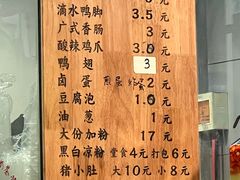 滴水鸭脚 3.5元
广式香肠 3元
酸辣鸡爪 3.0元
鸭翅 3元
卤蛋 煎蛋 虾 2元
豆腐泡 1.0元
油葱 1元
大份加粉 17元
黑白凉粉 堂食4元打包6元
猪小肚 大10元 小8元